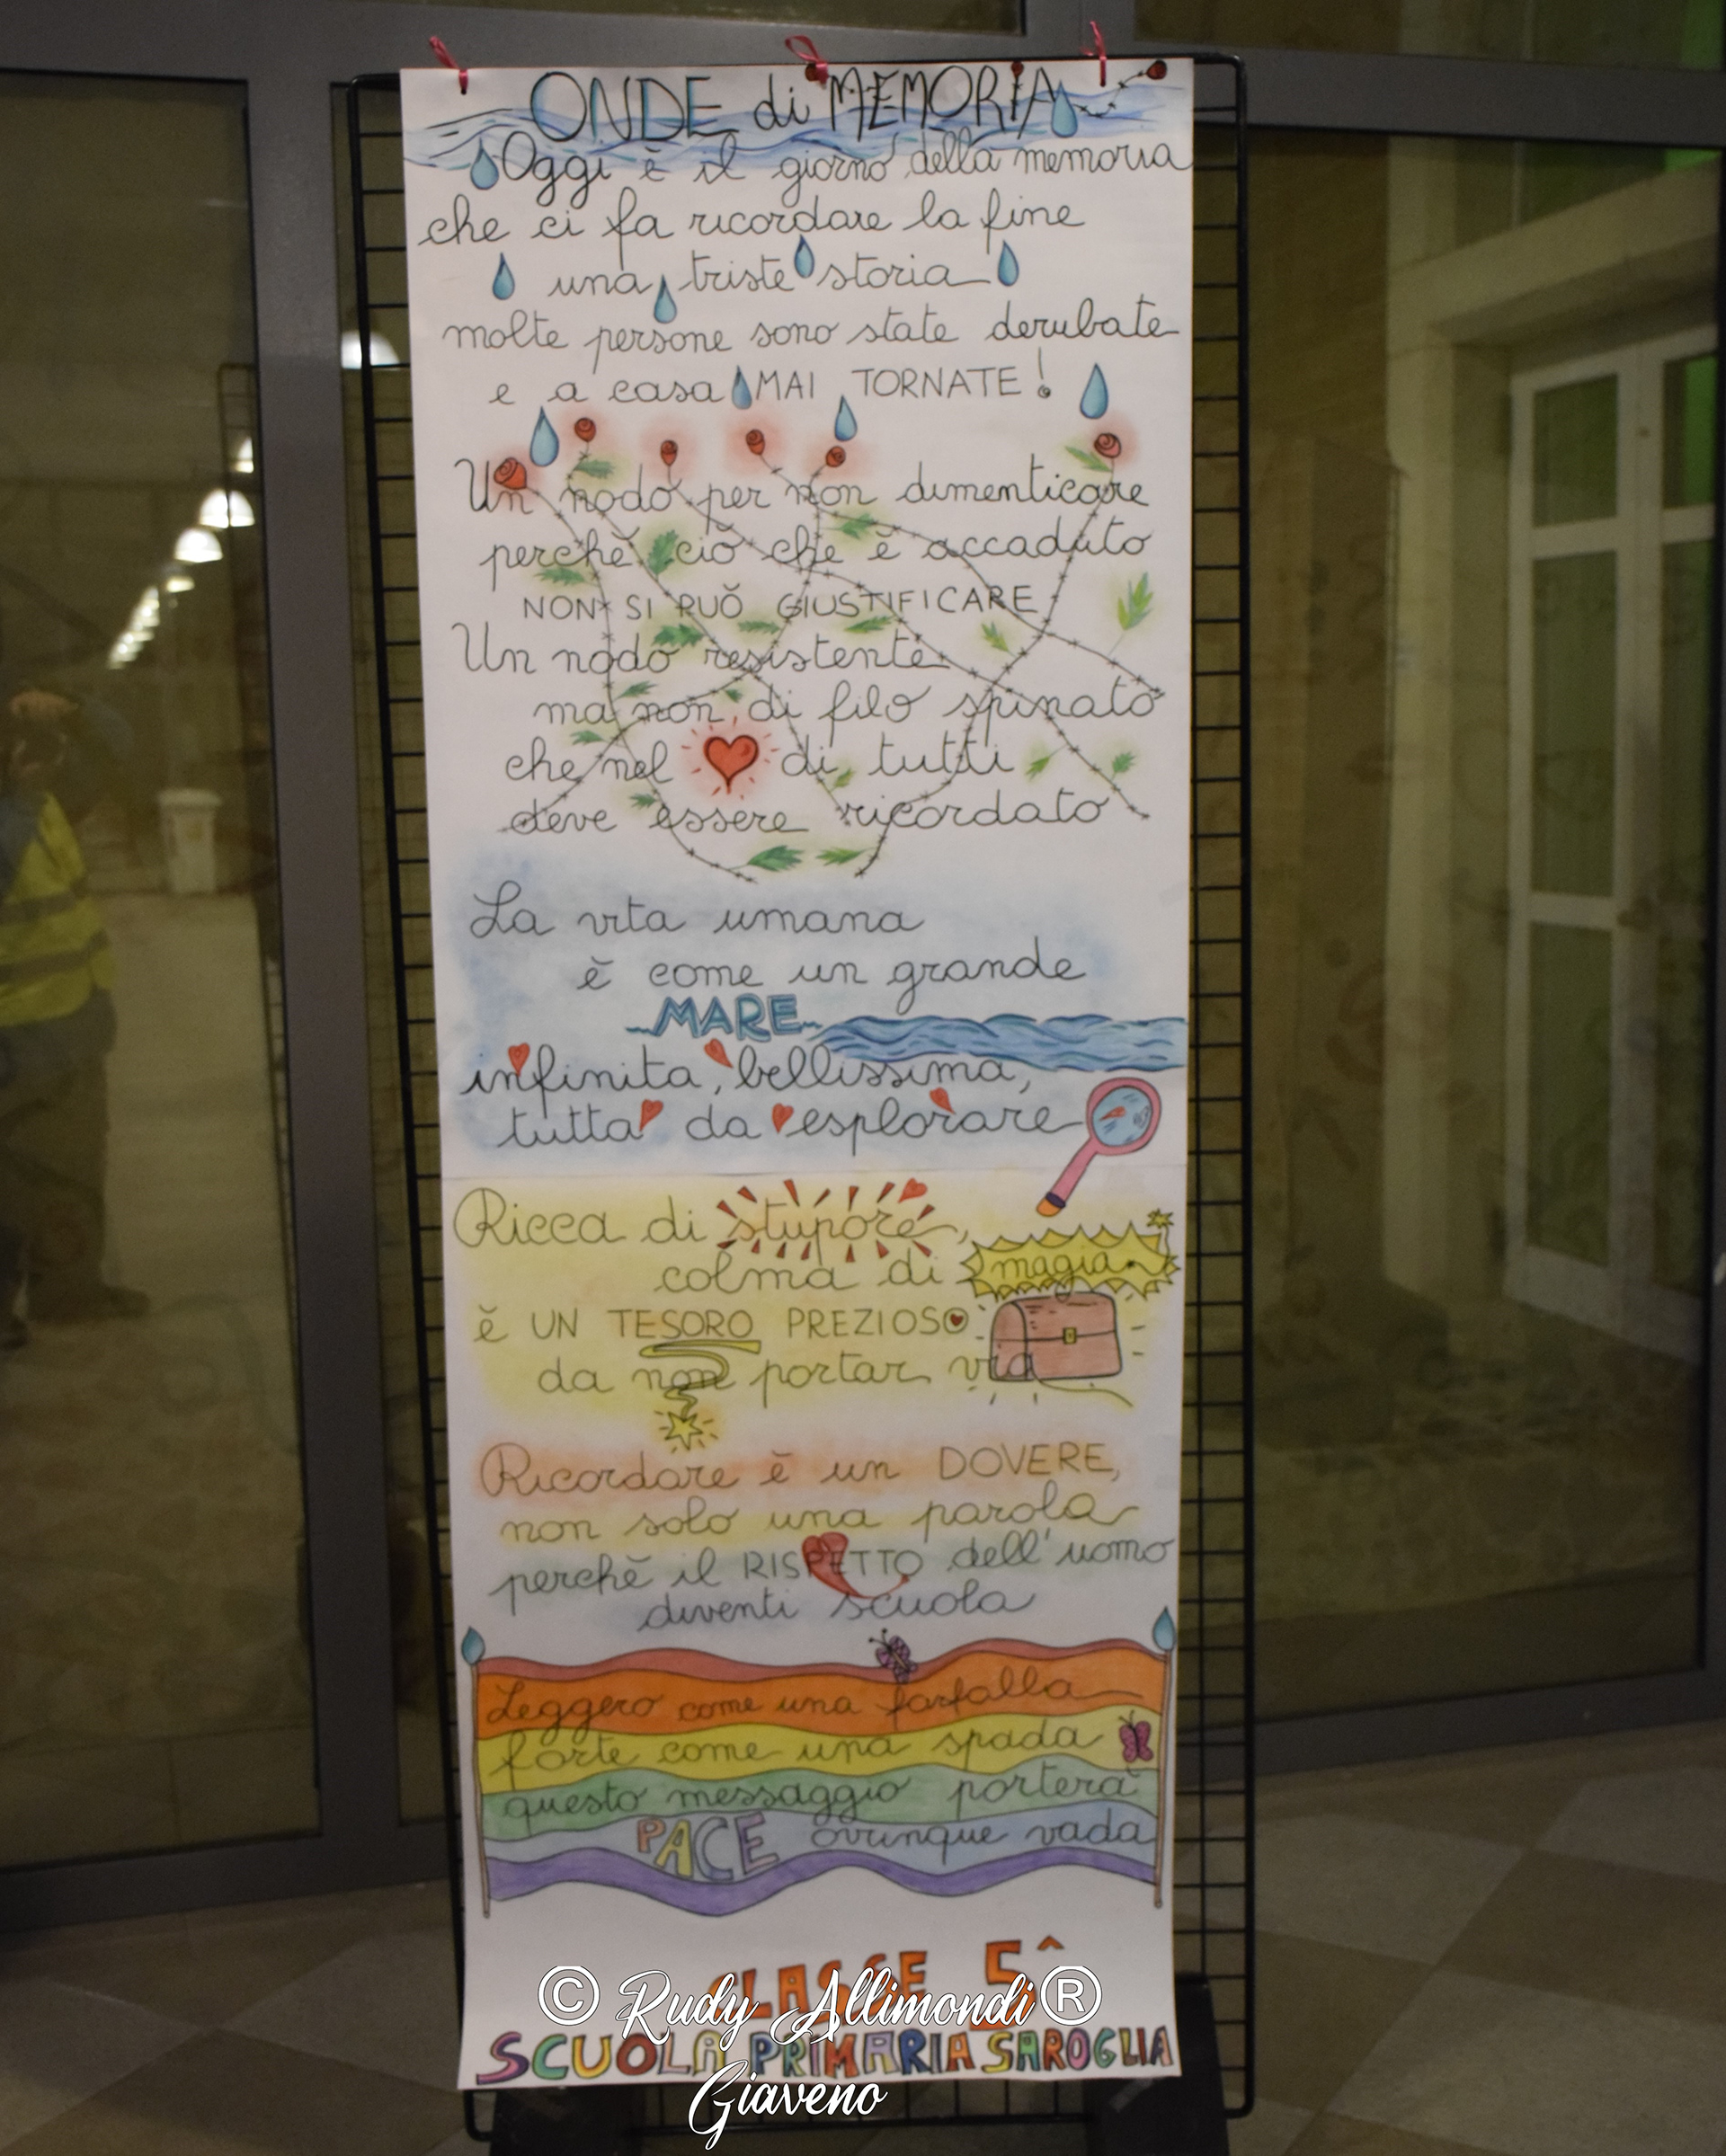 ONDE di MEMORIA
Oggi è il giorno della memoria
che ci fa ricordare la fine
una triste storia
molte persone sono state derubate
e a casa MAI TORNATE!
Un nodo per non dimenticare
perchè ciò che è accaduto
NON SI PUÒ GIUSTIFICARE
Un nodo resistente
ma non di filo spinato
che nel di tutti
deve essere ricordato
La vita umana
è come un grande
MARE
infinita, bellissima,
tutta da esplorare
Ricca di stupore,
colma di magia
è UN TESORO PREZIOSO
da non portar via
Ricordare è un DOVERE,
non solo una parola
perchè il RISPETTO dell'uomo
diventi scuola
Leggero come una farfalla
forte come una spada
questo messaggio porterà
PACE ovunque vada
CLASSE 5^
© Rudy Allimondi ®
SCUOLA PRIMARIA SAROGLIA
Giaveno